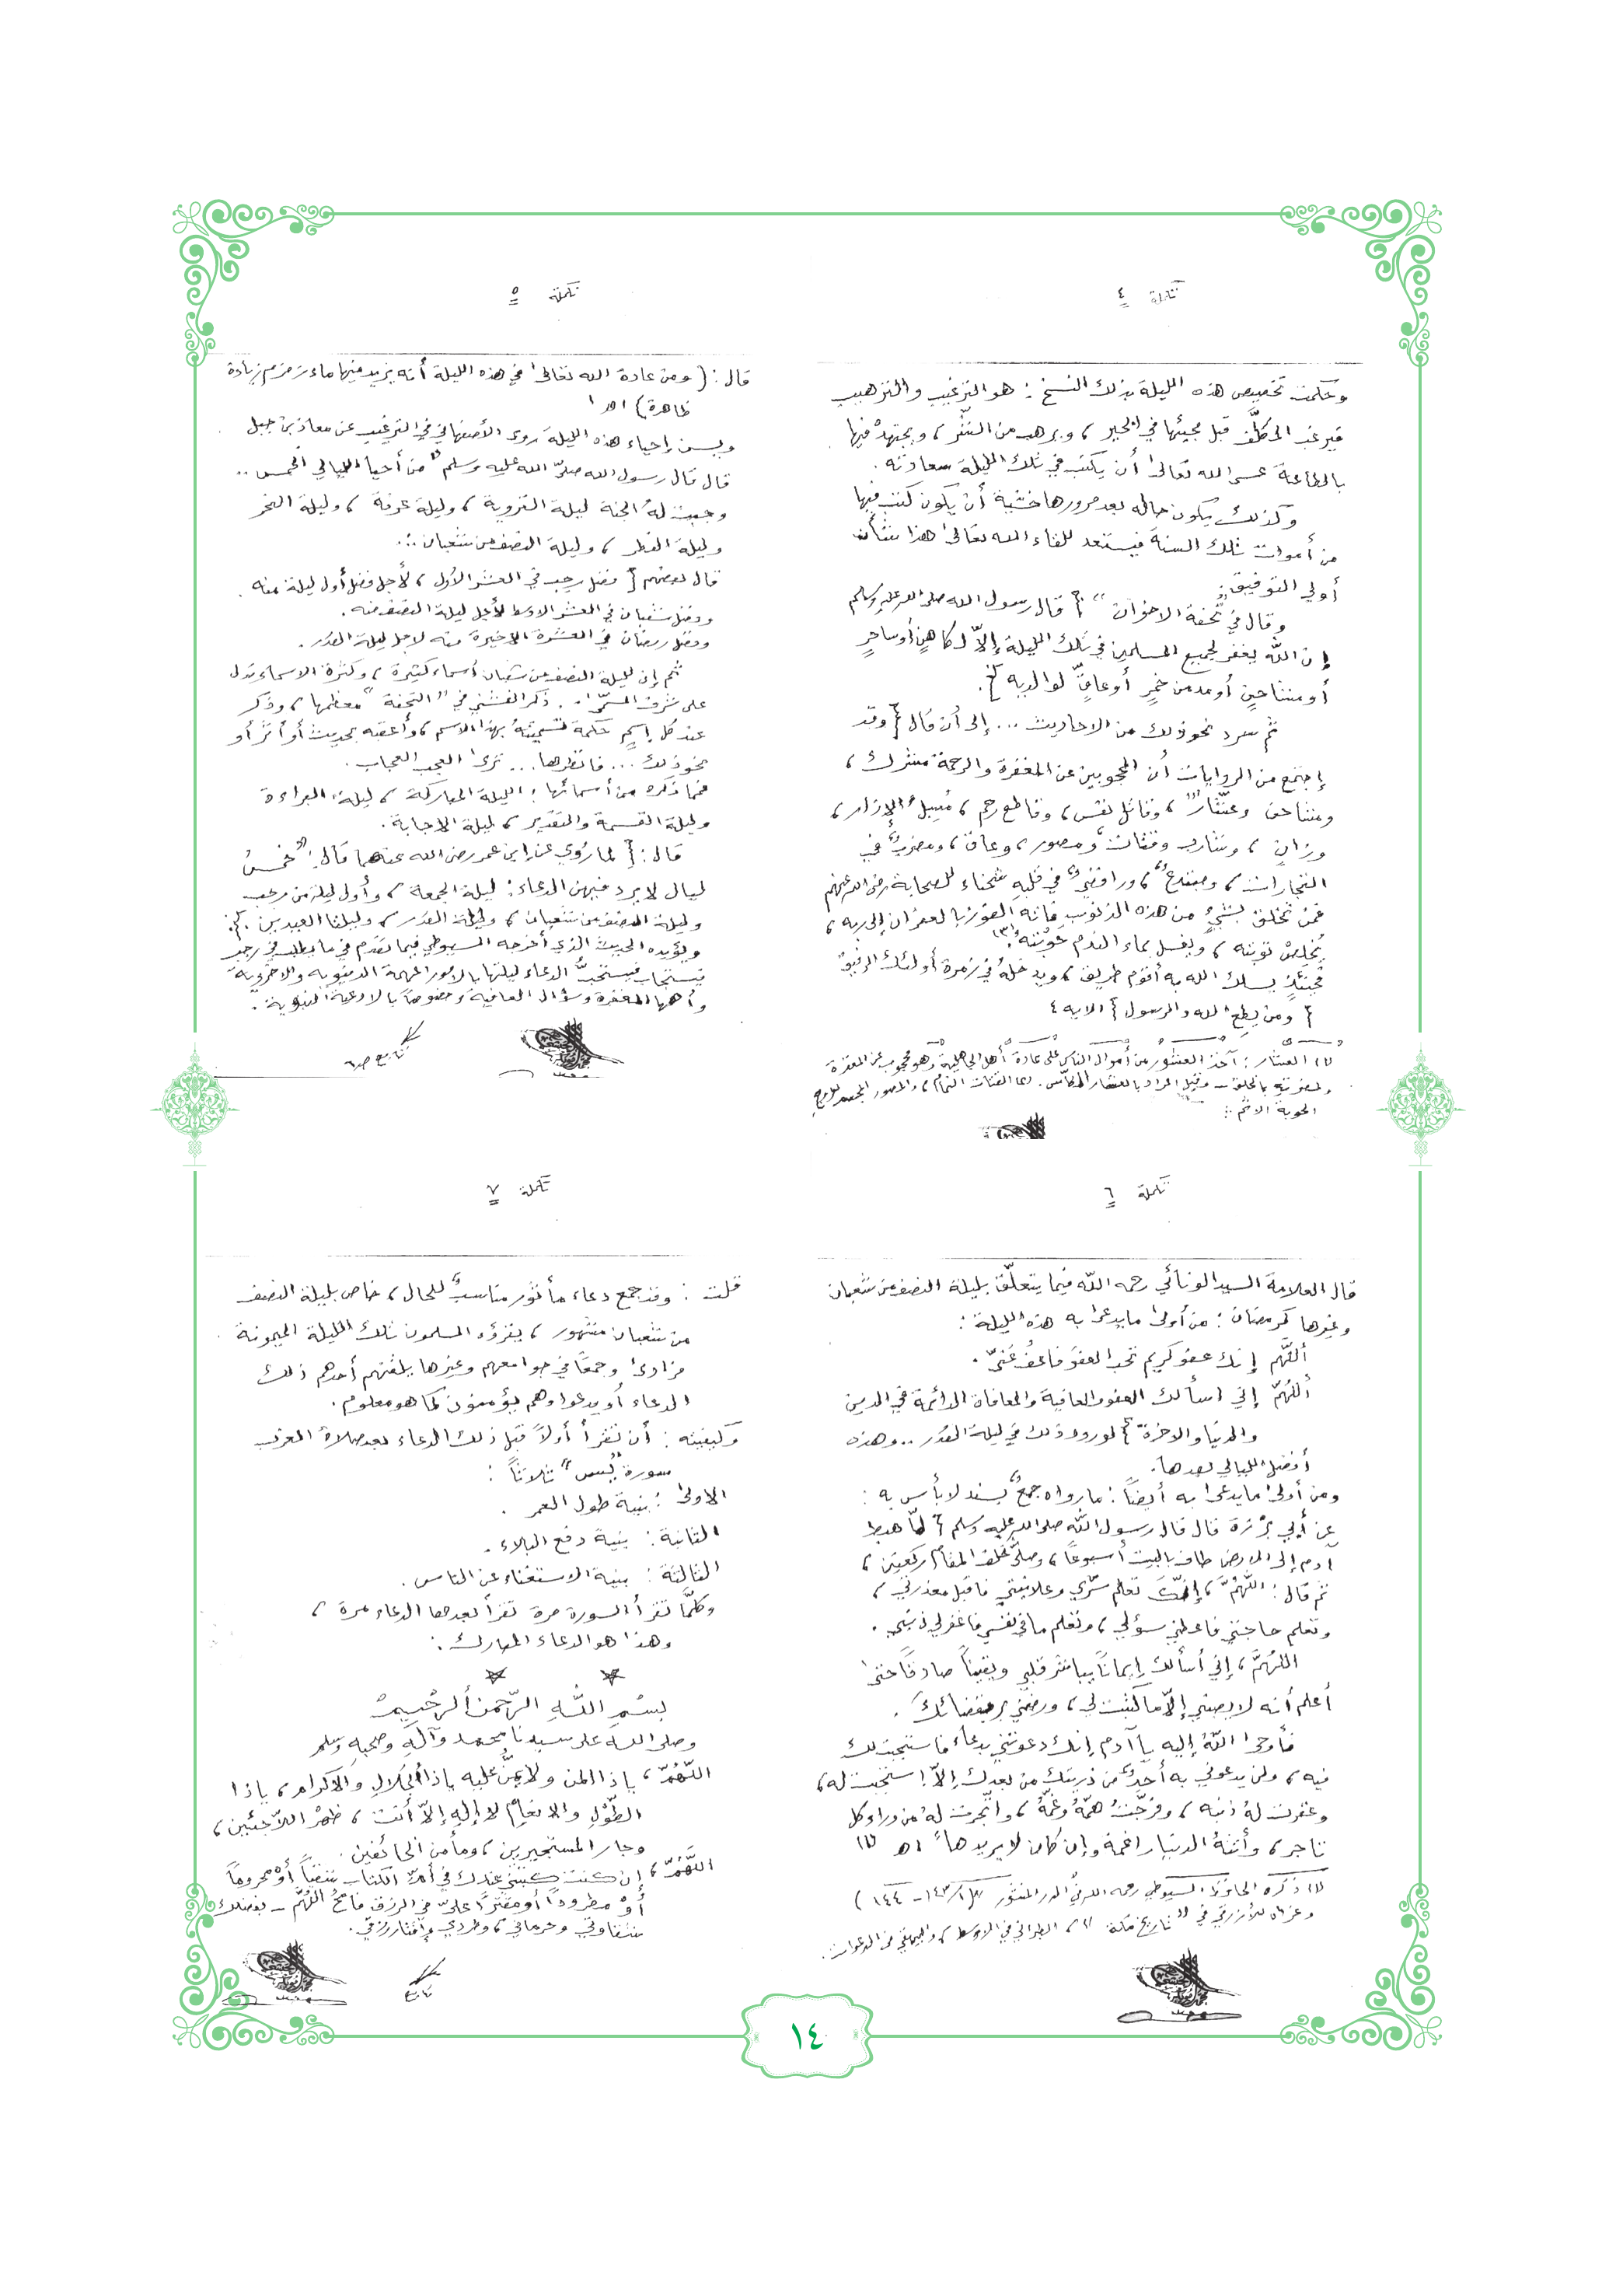 تكملة ٤
وحكمت تخصيص هذه الليلة بذلك النسخ : هو الترغيب والترهيب
فيرغب المكلَّف قبل مجيئها في الخير ، ويرهب من الشر ، ويجتهد فيها
بالطاعة عسى الله تعالى أن يكتب في تلك الليلة سعادته .
وكذلك يكون حاله بعد مرورها خشية أن يكون كتب فيها
من أموات تلك السنة فيستعد للقاء الله تعالى هذا شأن
أولي التوفيق .
وقال في تحفة الاخوان " { قال رسول الله صلى الله عليه وسلم
إن الله يغفر لجميع المسلمين في تلك الليلة إلاّ لكاهن أو ساحر
أو مشاحن أو مدمن خمرٍ أو عاقٍّ لوالديه } .
ثم سرد نحو ذلك من الاحاديث ... إلى أن قال { وقد
إجتمع من الروايات أن المحجوبين عن المغفرة والرحمة مشرك ،
ومشاحن وعشّار (١) ، وقاتل نفس ، وقاطع رحم ، مُسبل الإزار ،
وزانٍ ، وشارب وقتات ومصور ، وعاق ، ومضرب في
التجارات ، ومبتدع ، ورافضي في قلبه شحناء للصحابة رضي الله عنهم
فمن تخلق بشيءٍ من هذه الذنوب فإنه الفوز بالغفران إلى ربه ،
يُخلِصْ توبته ، ويغسل بماء الندم حَوْبته (٣) .
فحينئذٍ يسلك الله به أقوم طريق ، ويدخلهُ في زمرة أولئك الرفيق
{ ومن يطع الله والرسول } الايه ٤
(١) العشّار : آخذ العشور من أموال الناس على عادة أهل الجاهلية وهو محجوب عن المغفرة
بالخلق – وقيل المراد بالعشار المكّاس . اما القتات النمام ، والمصور
الحوبة الاثم :
تكملة ٥
قال : ( ومن عادة الله تعالى في هذه الليلة أنه يزيد فيها ماء زمزم زيادة
ظاهرة ) اهـ
ويسن إحياء هذه الليلة روى الأصفهاني في الترغيب عن معاذ بن جبل
قال قال رسول الله صلّى الله عليه وسلم " من أحيا الليالي الخمس ..
وجبت لهُ الجنة ليلة التروية ، وليلة عرفة ، وليلة النحر
وليلة الفطر ، وليلة النصف من شعبان .
قال بعضهم { فضل رجب في العشر الأول ، لأجل فضل أول ليلة منه .
وفضل شعبان في العشر الاوسط لأجل ليلة النصف منه .
وفضل رمضان في العشرة الاخيرة منه لاجل ليلة القدر .
ثم إن لليلة النصف من شعبان أسماء كثيرة ، وكثرة الاسماء تدل
على شرف المسمّى . ذكر الفشني في " التحفة " معظمها ، وذكر
عند كل إسمٍ حكمة تسميتهُ بهذا الاسم ، وأعقبه بحديث أو أثر أو
نحو ذلك ... فانظرها ... ترى العجب العجاب .
فمما ذكره من أسمائها : الليلة المباركة ، ليلة البراءة
وليلة القسمة والتقدير ، ليلة الاجابة .
قال : { لما رُوي عن إبن عمر رضي الله عنهما قال : " خمسُ
ليال لا يرد فيهن الدعاء : ليلة الجمعة ، وأول ليلة من رجب
وليلة النصف من شعبان ، وليلة القدر ، وليلتا العيدين .
ويؤيده الحديث الذي أخرجه السيوطي فيما تقدم في ما يطلب في رجب
فيستحبُّ الدعاء ليلتها بالامور المهمة الدنيويه والاخروية
وأهمها المغفرة وسؤال العافية وخصوصاً بالادعية النبوية .
تابع ص٦
تكملة ٦
قال العلامة السيد الونائي رحمه الله فيما يتعلّق بليلة النصف من شعبان
وغيرها كرمضان : من أولى ما يدعى به هذه الليلة :
أللهّم إنك عفو كريم تحب العفوَ فاعفُ عَنّي .
أللهُمّ إني اسألك العفو والعافية والمعافاة الدائمة في الدين
والدنيا والاخرة } لورود ذلك في ليلة القدر .. وهذه
أفضل الليالي بعدها .
ومن أولى ما يدعى به أيضاً : ما رواه جمعٌ بسند لا بأس به :
عن أبي برزة قال قال رسول الله صلى الله عليه وسلم { لمّا هبط
آدم إلى الارض طاف بالبيت أسبوعاً ، وصلّى خلف المقام ركعتين ،
ثم قال : اللهُمَّ ، إنّكَ تعلم سرّي وعلانيتي فاقبل معذرتي ،
وتعلم حاجتي فاعطني سؤلي ، وتعلم ما في نفسي فاغفر لي ذنبي .
اللهُمَّ ، إني أسألك إيماناً يباشر قلبي ويقيناً صادقاً حتى
أعلم أنه لا يصيبني إلاّ ما كتبت لي ، ورضّني بقضائكَ .
فأوحى اللّهُ إليه يا آدم إنك دعوتني بدعاء فاستجبت لك
فيه ، ولن يدعوني به أحدٌ من ذريتك من بعدك إلاّ استجبت له ،
وغفرت لهُ ذنبه ، وفرّجتُ همّهُ وغمّهُ ، واتّجرت لهُ من وراء كل
تاجر ، وأتتهُ الدنيا راغمة وإن كان لا يريدها " اهـ (١)
(١) ذكره الحافظ السيوطي رحمه الله في الدر المنثور ( ١٤٣/١ – ١٤٤ )
وعزاه للأزرقي في " تاريخ مكة " ، الطبراني في الاوسط ، والبيهقي في الدعوات .
تكملة ٧
قلت : وقد جمع دعاء مأثور مناسبٌ للحال ، خاص بليلة النصف
من شعبان مشهور ، يقرؤه المسلمون تلك الليلة الميمونة
فرادى وجمعاً في جوامعهم وغيرها يلقنهم أحدهم ذلك
الدعاء أو يدعوا وهم يؤمنون كما هو معلوم .
وكيفيته : أن تقرأ أولاً قبل ذلك الدعاء بعد صلاة المغرب
سورة " يس " ثلاثاً :
الاولى : بنية طول العمر .
الثانية : بنية دفع البلاء .
الثالثة : بنية الاستغناء عن الناس .
وكلمّا تقرأ السورة مرة تقرأ بعدها الدعاء مرة ،
وهذا هو الدعاء المبارك :
بسْمِ اللهِ الرّحمن الرحيم
وصلى الله على سيدنا محمد وآلهِ وصحبهِ وسلم
اللّهُمّ ، ياذا المن ولا يمنُّ عليه ياذا الجلالِ والاكرام ، ياذا
الطّوْلِ والانعامِ لا إله إلاّ أنت ، ظهرْ اللاّجئين ،
وجار المستجيرين ، ومأمن الخائفين .
اللّهُمّ ، إن كنت كتبتني عندك في أمّ الكتاب شقياً أوْ محروماً
أوْ مطروداً أو مقتراً عليّ في الرزق فامحُ اللهُمّ – بفضلك
شقاوتي وحرماني ، وطردي وإقتار رزقي .
تابع
١٤